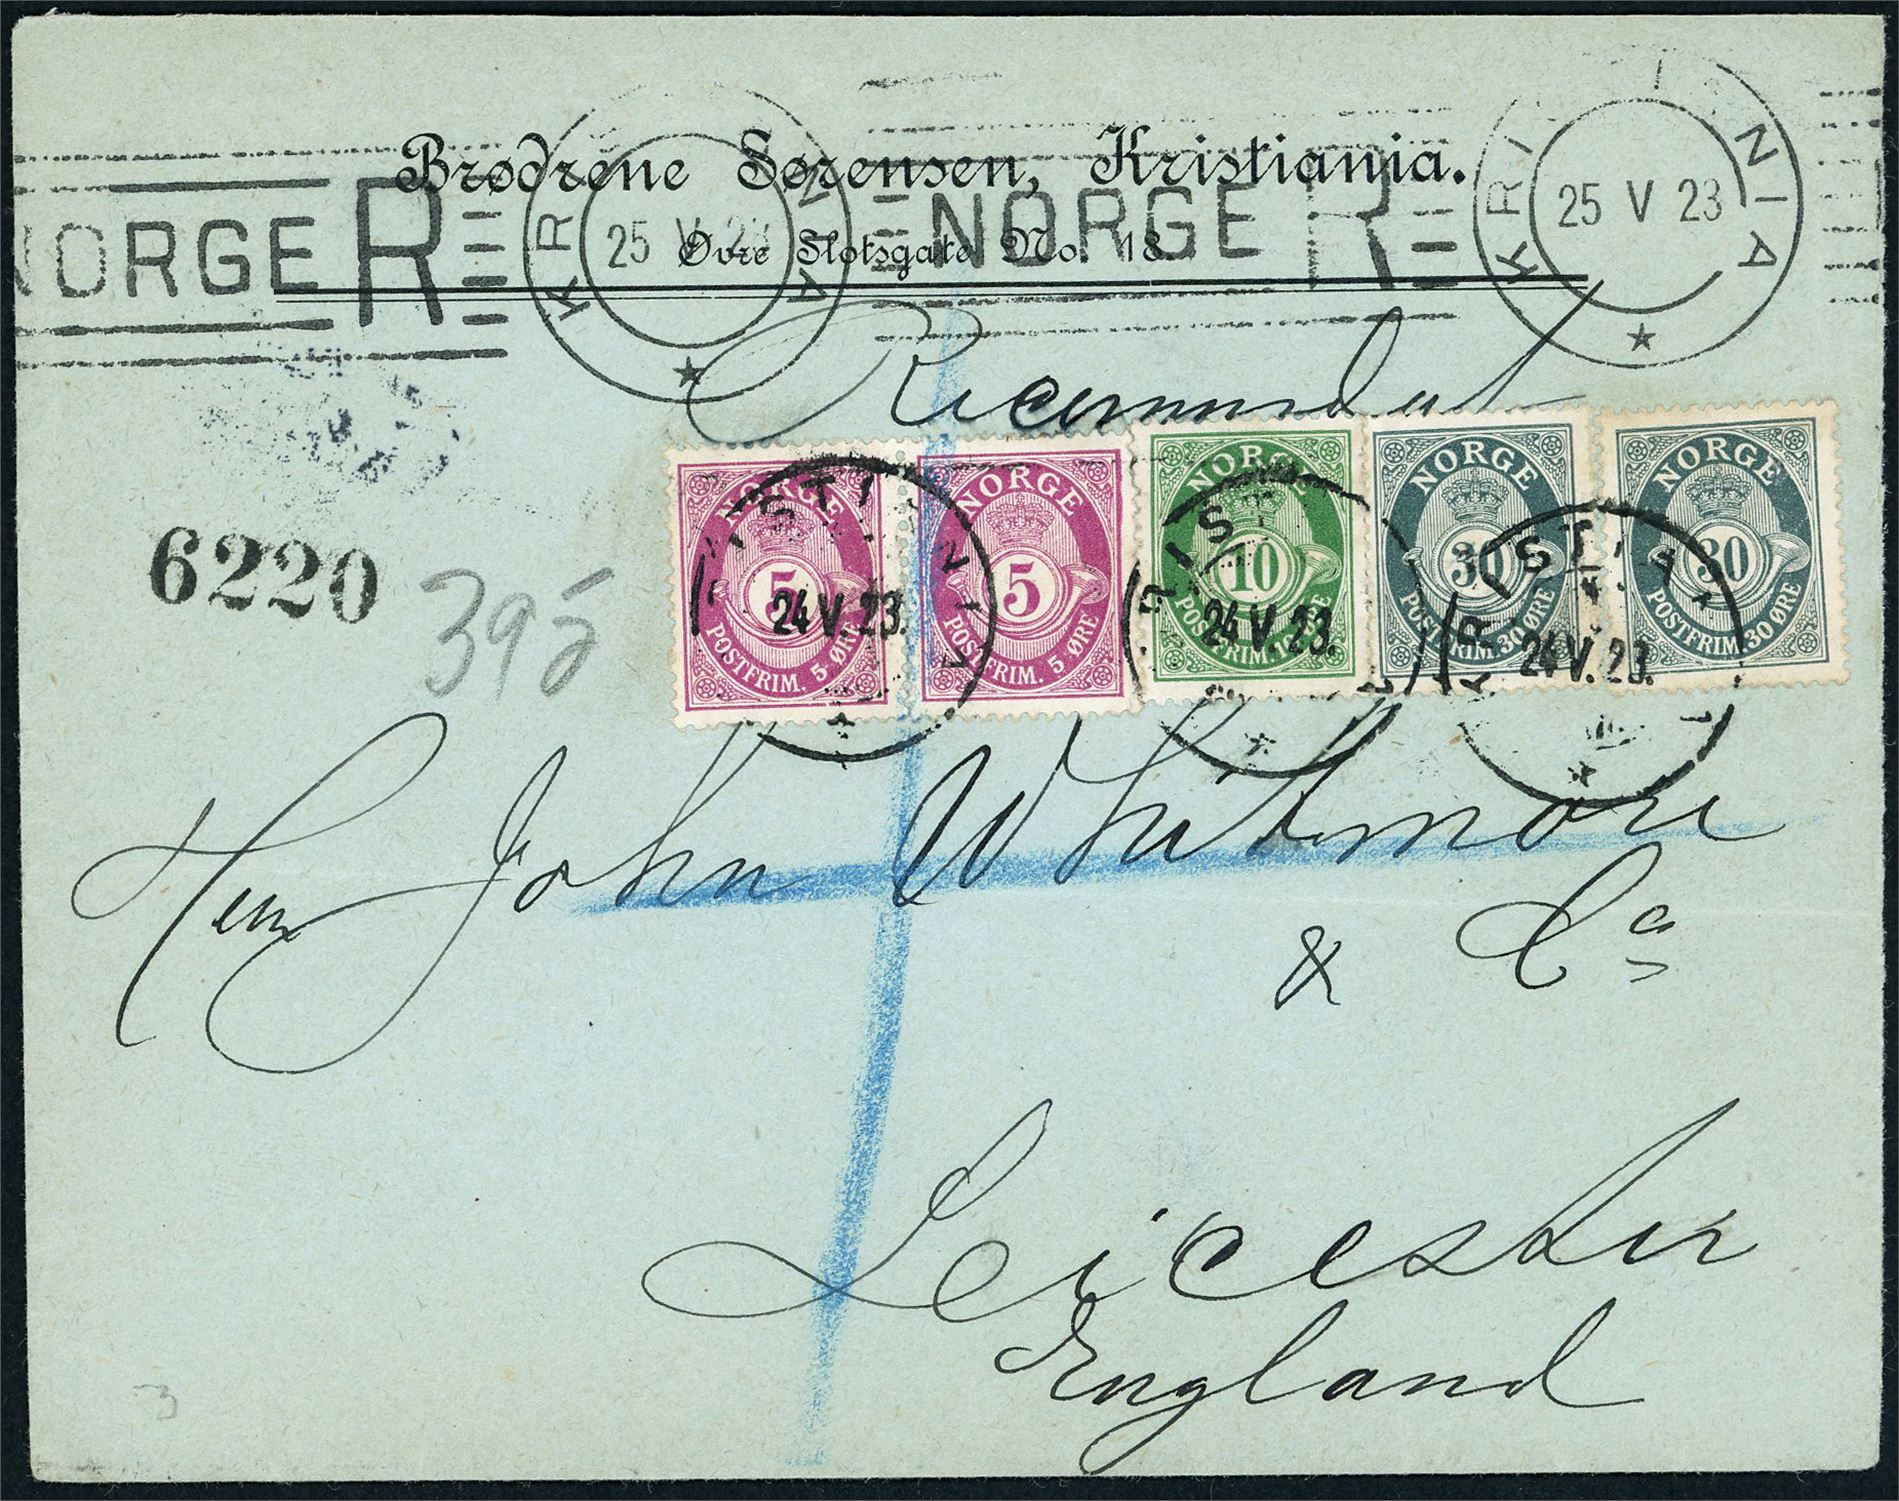 Brødrene Sørensen, Kristiania.
Øvre Slotsgate No. 18
NORGE R KR NIA 25 V 23 NORGE R KRI NIA 25 V 23
Recommandat
NORGE 5 POSTFRIM. 5 ØRE
NORGE 5 POSTFRIM. 5 ØRE
NORGE 10 POSTFRIM. 10 ØRE
NORGE 30 POSTFRIM. 30 ØRE
NORGE 30 POSTFRIM. 30 ØRE
24 V. 23.
24 V. 23.
24 V. 23.
6220
395
Herr John Whitmore
& Co
Leicester
England
3